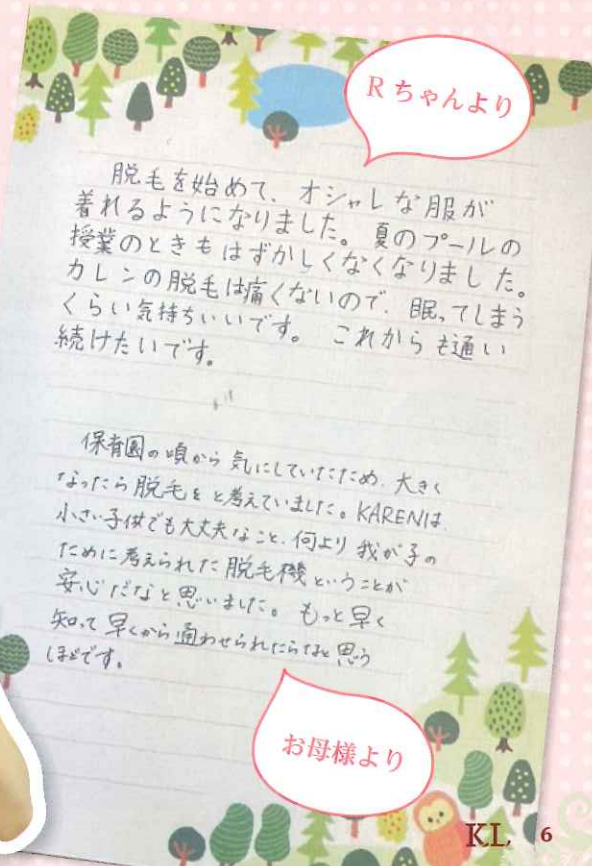 Rちゃんより
脱毛を始めて、オシャレな服が
着れるようになりました。夏のプールの
授業のときもはずかしくなくなりました。
カレンの脱毛は痛くないので、眠ってしまう
くらい気持ちいいです。これからも通い
続けたいです。
保育園の頃から気にしていたため、大きく
なったら脱毛をと考えていました。KARENは
小さい子供でも大丈夫なこと、何より我が子の
ために考えられた脱毛機ということが
安心だなと思いました。もっと早く
知って早くから通わせられたらなと思う
ほどです。
お母様より
KL, 6